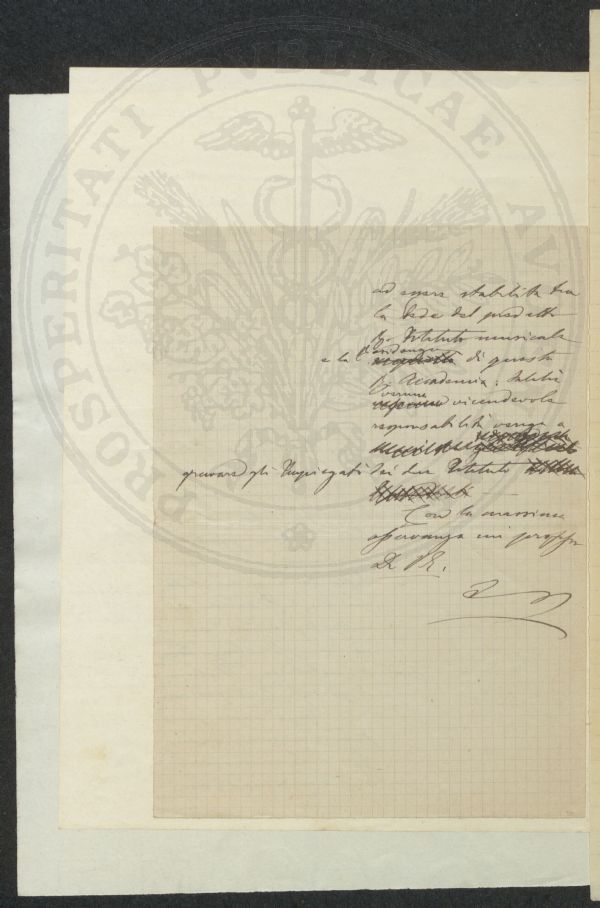 PROSPERITATI PUBLICAE AU
ad essere stabilita tra
la sede del predetto
R. Istituto musicale
e la residenza di questa
R. Accademia;
veruna vicendevole
responsabilità venga a
gravare gli Impiegati dei due Istituti
Con la massima
osservanza mi
Di V.E.